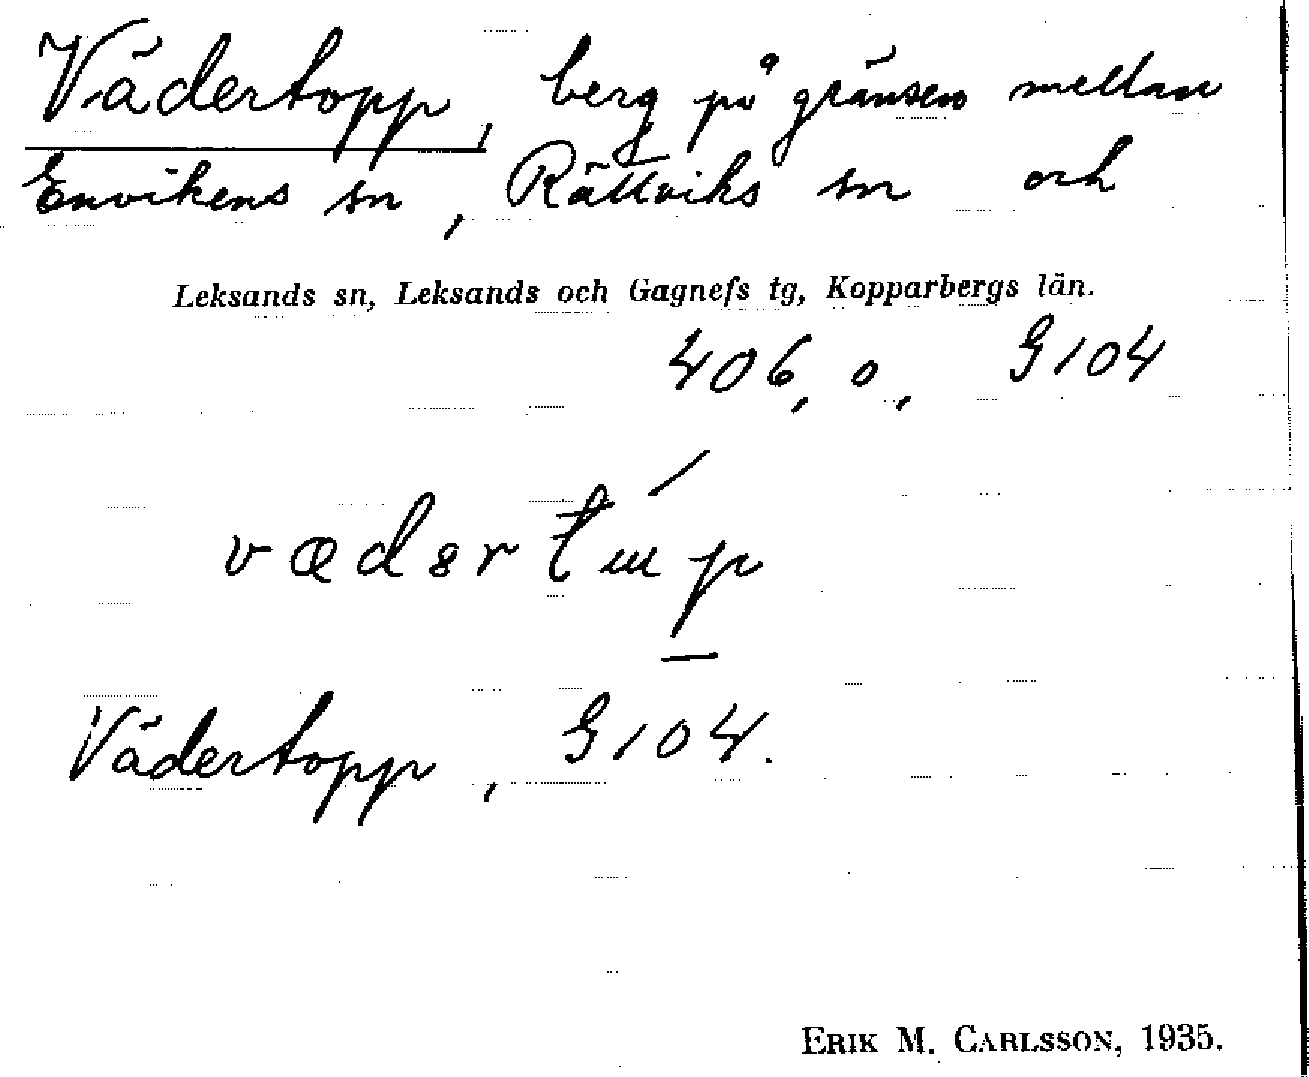 Vädertopp, berg på gränsen mellan
Envikens sn, Rättviks sn och
Leksands sn, Leksands och Gagnefs tg, Kopparbergs län.
406, o, G104
Vädertopp, G104.
ERIK M. CARLSSON, 1935.